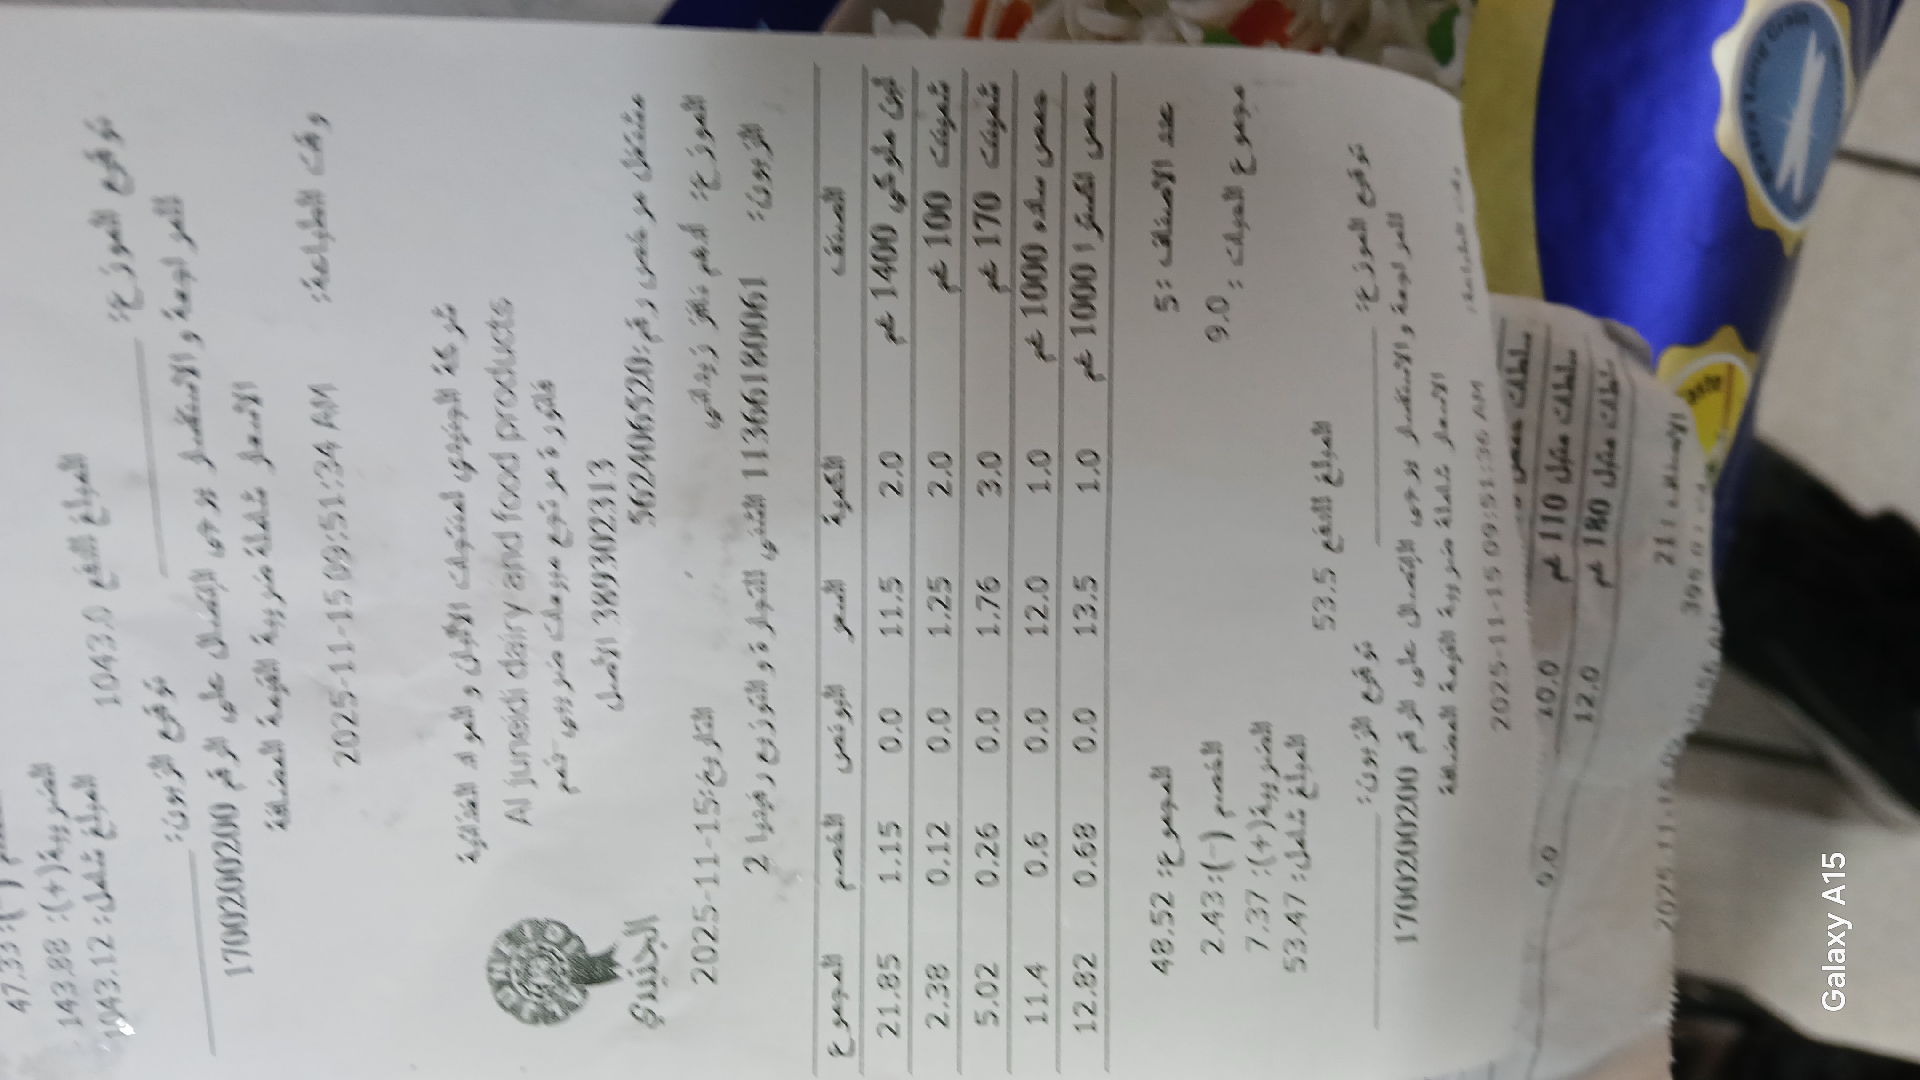 47.33 :(-)
الضريبة(+): 143.88
المبلغ شامل: 1043.12 المبلغ للدفع 1043.0
توقيع الزبون: توقيع الموزع:
للمراجعة و الاستفسار يرجى الإتصال على الرقم 1700200200
الاسعار شاملة ضريبة القيمة المضافة
وقت الطباعة: 2025-11-15 09:51:34 AM
شركة الجنيدي لمنتوجات الألبان و المواد الغذائية
Al juneidi dairy and food products
فاتورة مرتجع مبيعات ضريبي
389302313 الأصل
مشتغل مرخص رقم:562406520
الجنيدي
الموزع: ادهم فائز زيداني التاريخ:15-11-2025
الزبون: 11366180061 المثنى للتجارة و التوزيع رفيديا 2
الصنف الكمية السعر البونص الخصم المجموع
لبن ملوكي 1400 غم 2.0 11.5 0.0 1.15 21.85
شمينت 100 غم 2.0 1.25 0.0 0.12 2.38
شمينت 170 غم 3.0 1.76 0.0 0.26 5.02
حمص ساده 1000 غم 1.0 12.0 0.0 0.6 11.4
حمص اكسترا 1000 غم 1.0 13.5 0.0 0.68 12.82
عدد الاصناف :5 المجموع: 48.52
مجموع الحبات : 9.0 الخصم (-): 2.43
الضريبة(+): 7.37
المبلغ شامل: 53.47 المبلغ للدفع 53.5
توقيع الزبون: توقيع الموزع:
للمراجعة و الاستفسار يرجى الإتصال على الرقم 1700200200
الاسعار شاملة ضريبة القيمة المضافة
وقت الطباعة: 2025-11-15 09:51:36 AM
سلطات حمص
سلطات متبل 110 غم 10.0 0.0
سلطات متبل 180 غم 12.0
Galaxy A15